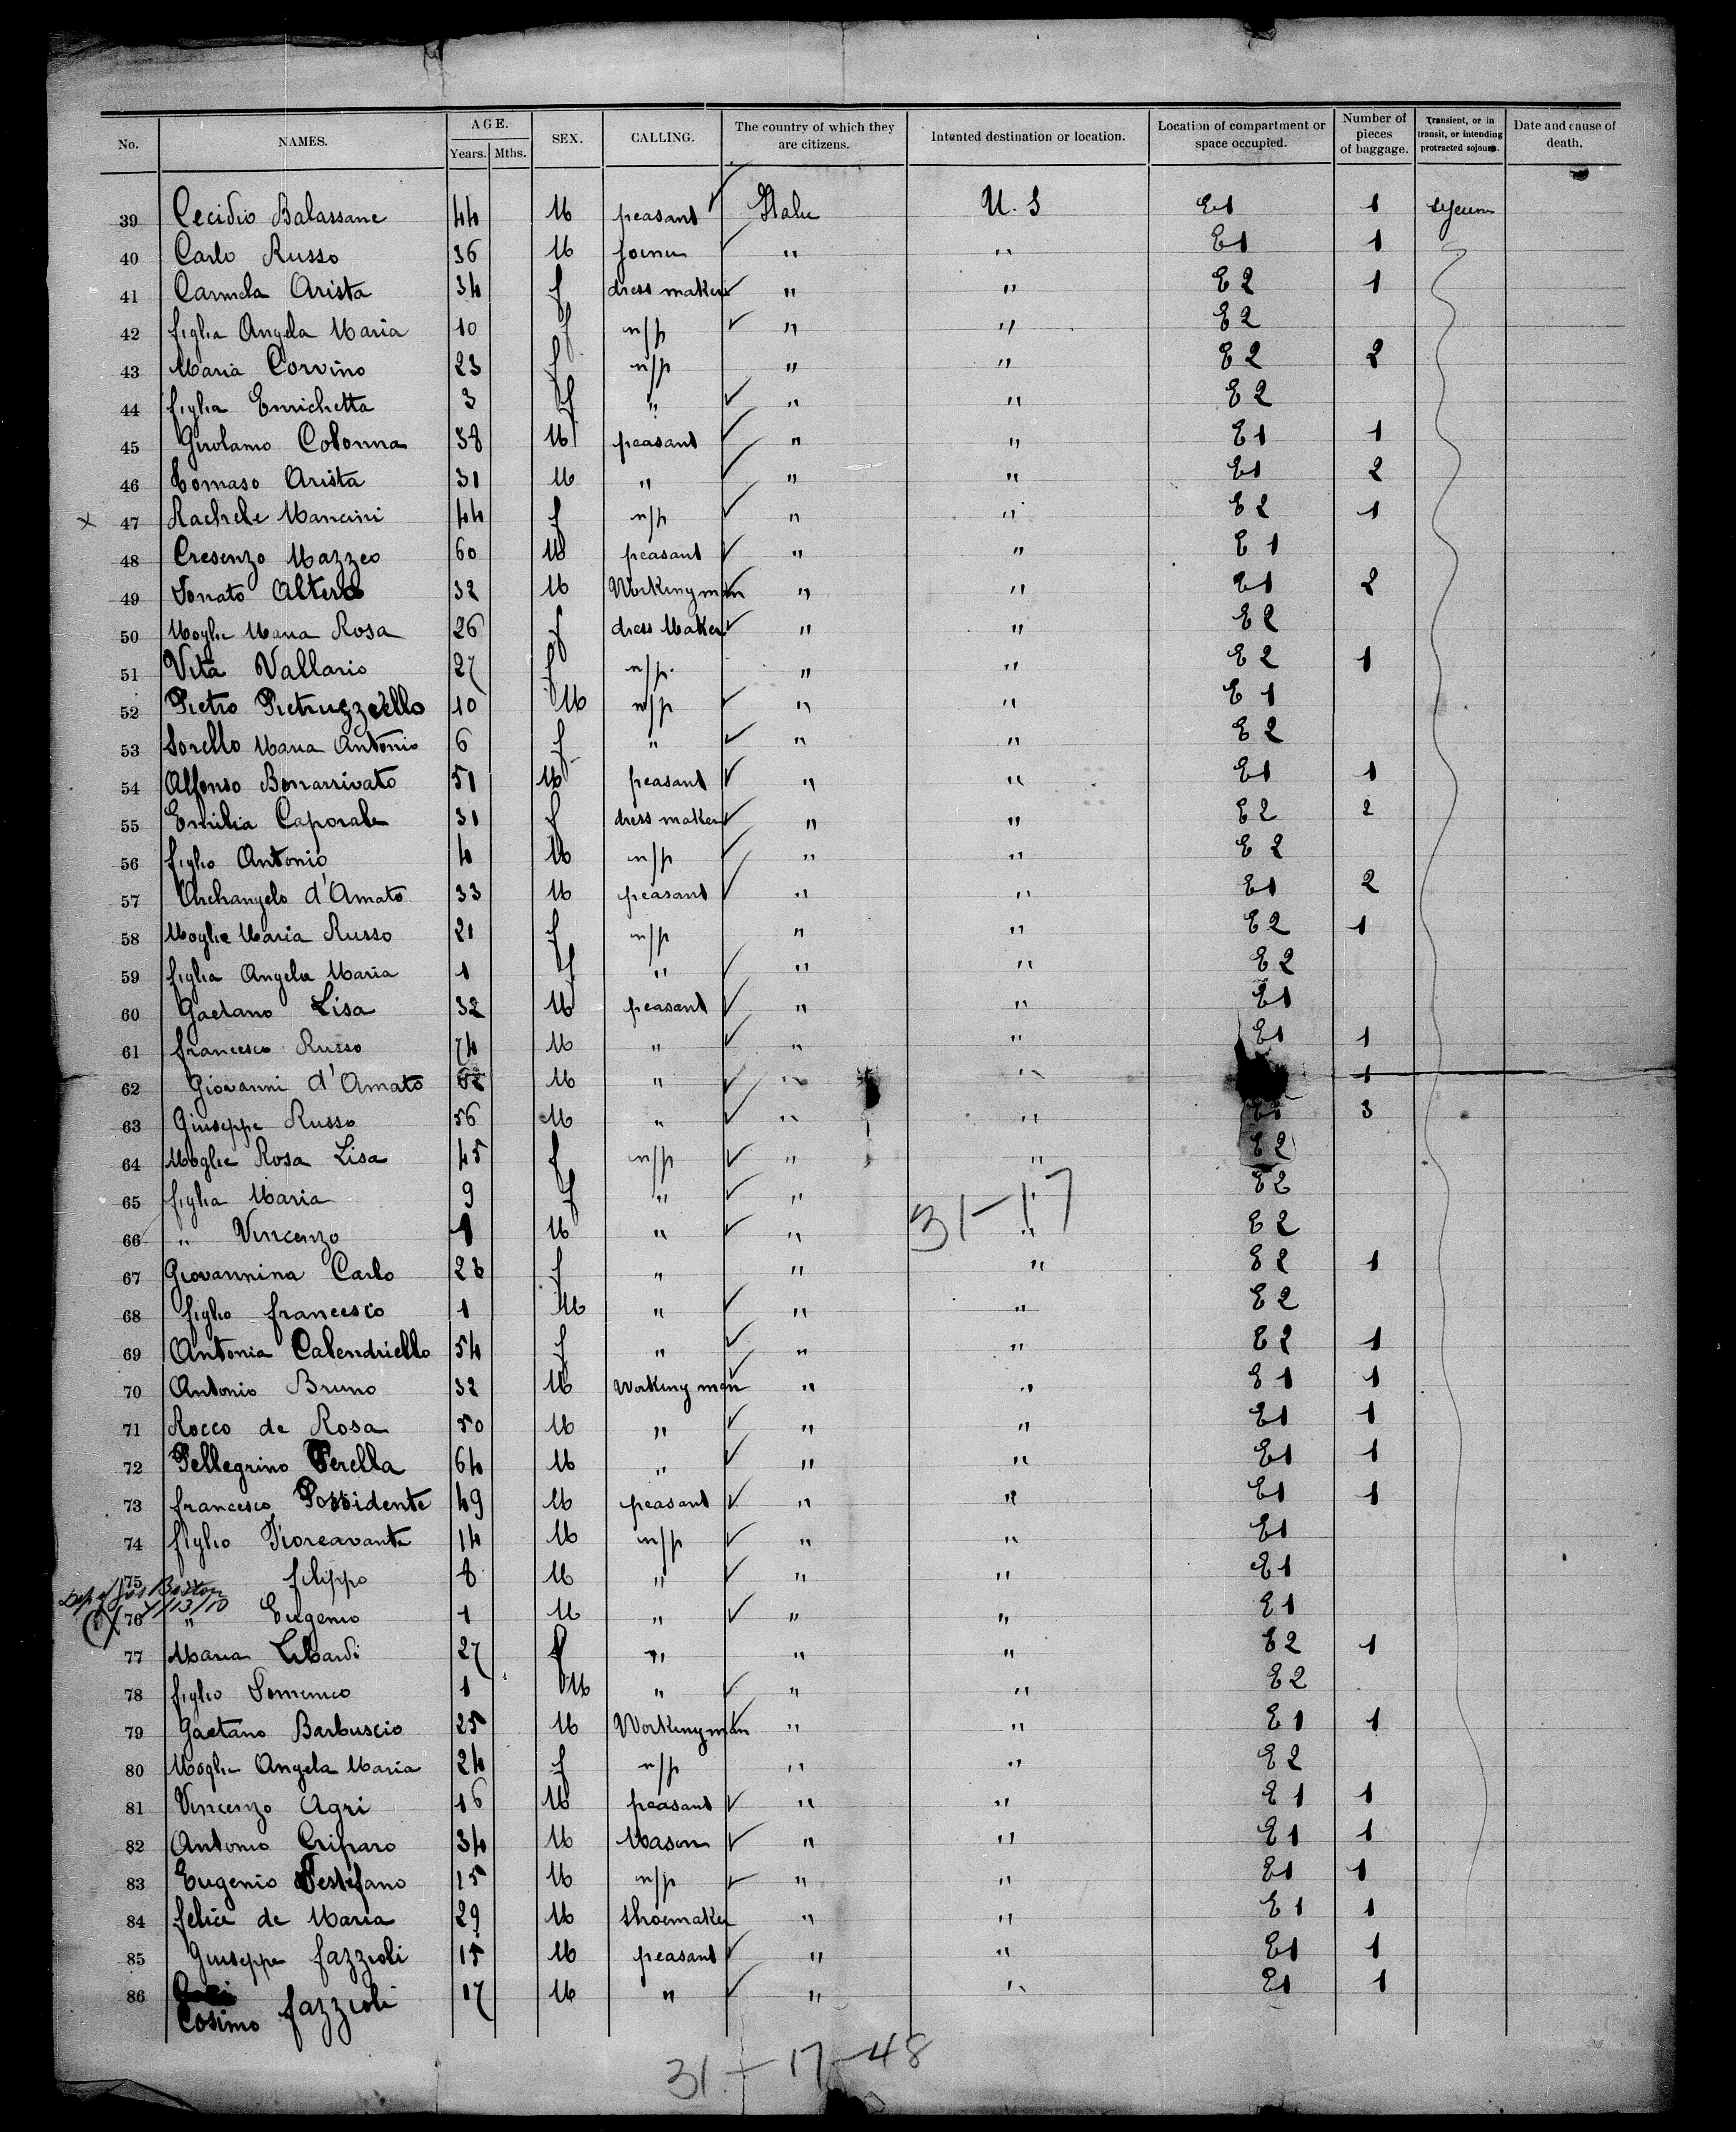 No. NAMES. AGE. Years. Mths. SEX. CALLING. The country of which they are citizens. Intented destination or location. Location of compartment or space occupied. Number of pieces of baggage. Transient, or in transit, or intending protracted sojourn. Date and cause of death.
39 Cecidio Balassane 44 M peasant Italie U. S E1 1
40 Carlo Russo 36 M " " E1 1
41 Carmela Arista 34 f dress maker " " E2 1
42 figlia Angela Maria 10 f n/p " " E2
43 Maria Corvino 23 f n/p " " E2 2
44 figlia Enrichetta 3 f " " " E2
45 Girolamo Colonna 38 M peasant " " E1 1
46 Tomaso Arista 31 M " " " E1 2
x 47 Rachele Mancini 44 f n/p " " E2 1
48 Cresenzo Mazzeo 60 M peasant " " E1
49 Donato Altero 32 M Workingman " " E1 2
50 Moglie Maria Rosa 26 f dress Maker " " E2
51 Vita Vallario 27 f n/p. " " E2 1
52 Pietro Pietruzzello 10 M n/p " " E1
53 Sorello Maria Antonio 6 f " " " E2
54 Alfonso Bonarrivato 51 M peasant " " E1 1
55 Emilia Caporale 31 f dress maker " " E2 2
56 figlio Antonio 4 M n/p " " E2
57 Archangelo d'Amato 33 M peasant " " E1 2
58 Moglie Maria Russo 21 f n/p " " E2 1
59 figlia Angela Maria 1 f " " " E2
60 Gaetano Lisa 32 M peasant " " E1
61 francesco Russo 74 M " " " E1 1
62 Giovanni d'Amato M " " " 1
63 Giuseppe Russo 56 M " " " E1 3
64 Moglie Rosa Lisa 45 f n/p " " E2
65 figlia Maria 9 f " " " E2
31-17
66 " Vincenzo 1 M " " " E2
67 Giovannina Carlo 23 f " " " E2 1
68 figlio francesco 1 M " " " E2
69 Antonia Calendriello 54 f " " " E2 1
70 Antonio Bruno 32 M Working man " " E1 1
71 Rocco de Rosa 50 M " " " E1 1
72 Pellegrino Perella 64 M " " " E1 1
73 francesco Possidente 49 M peasant " " E1 1
74 figlio Fioreavante 14 M n/p " " E1
75 filippo 8 M " " " E1
Boston
11/13/10
76 " Eugenio 1 M " " " E1
77 Maria Libardi 27 f " " " E2 1
78 figlio Domenico 1 M " " " E2
79 Gaetano Barbuscio 25 M Workingman " " E1 1
80 Moglie Angela Maria 24 f n/p " " E2
81 Vincenzo Agri 16 M peasant " " E1 1
82 Antonio Criparo 34 M Mason " " E1 1
83 Eugenio Destefano 15 M n/p " " E1 1
84 felice de Maria 29 M shoemaker " " E1 1
85 Giuseppe fazzioli 15 M peasant " " E1 1
86 Cosimo fazzioli 17 M " " " E1 1
31-17-48